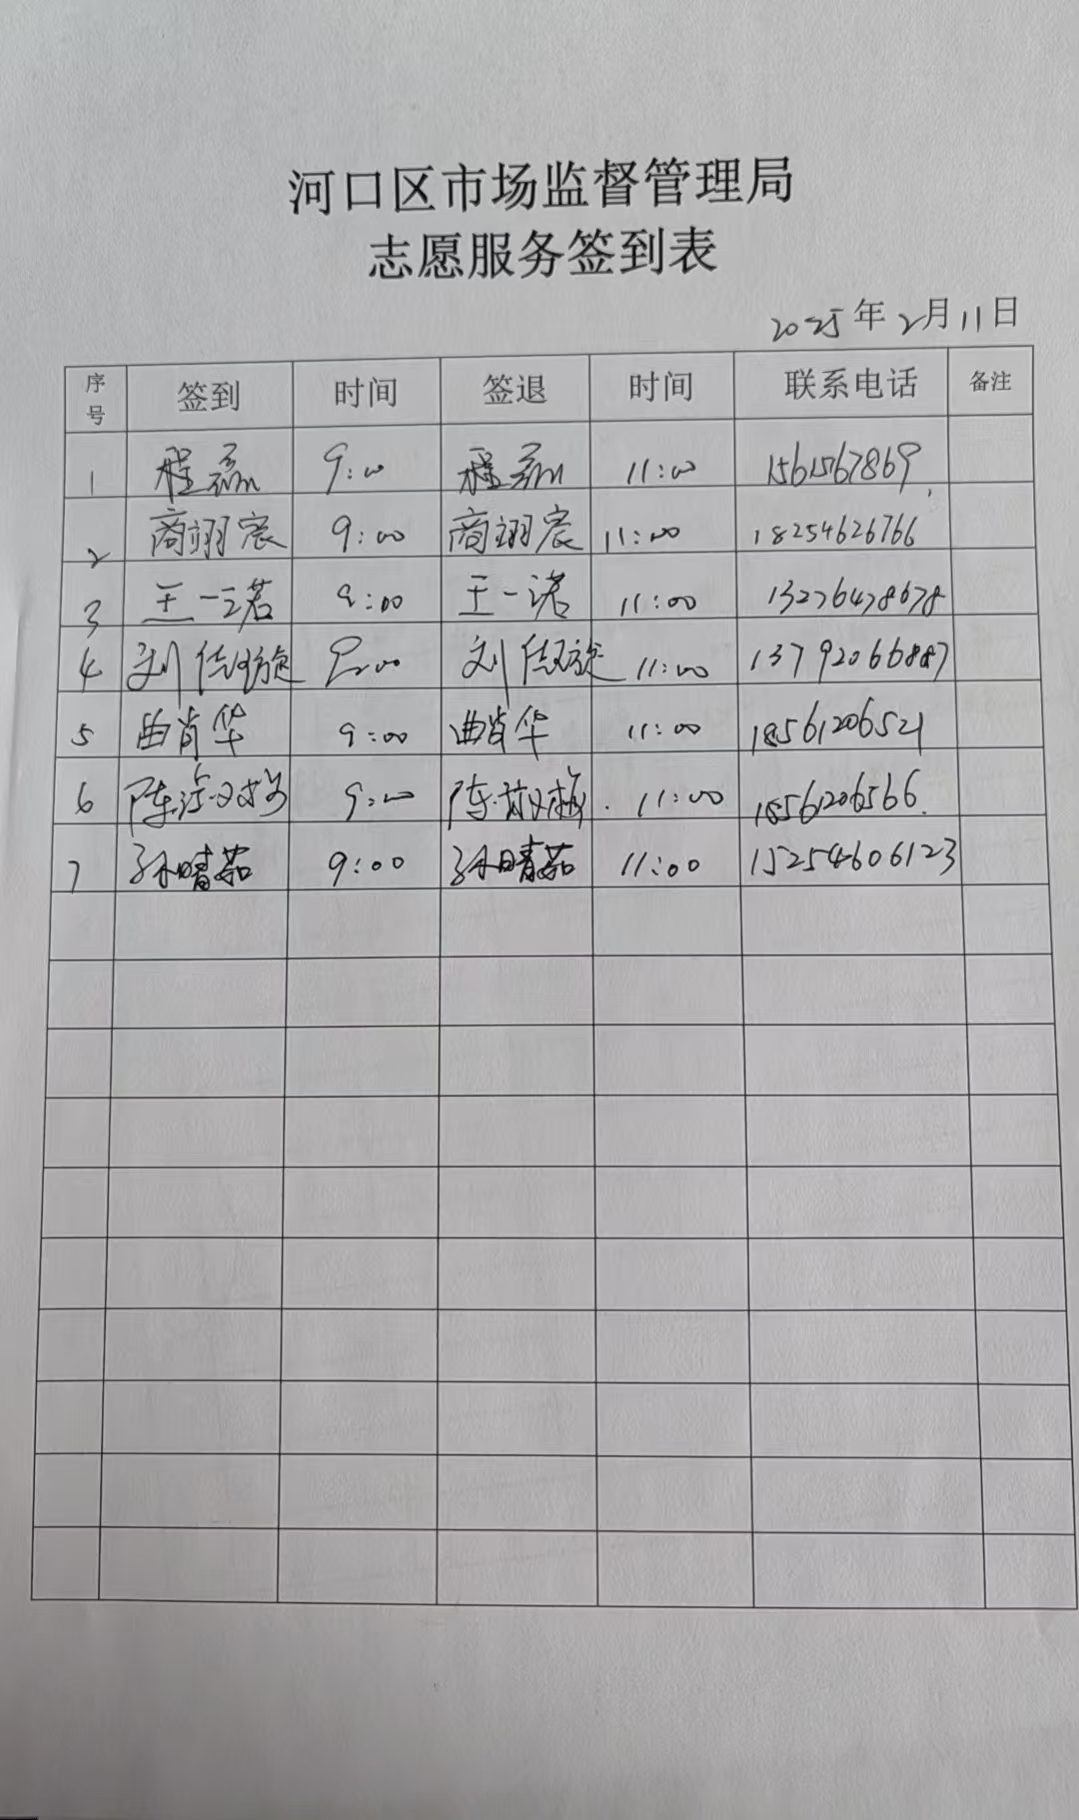 河口区市场监督管理局
志愿服务签到表
2025年2月11日
序号 签到 时间 签退 时间 联系电话 备注
1 程磊 9:00 程磊 11:00 1561567869
2 商翊宸 9:00 商翊宸 11:00 18254626766
3 王一诺 9:00 王一诺 11:00 13276478678
4 刘佳璇 9:00 刘佳璇 11:00 13792066887
5 曲肖华 9:00 曲肖华 11:00 18561206521
6 陈淑梅 9:00 陈淑梅 11:00 18561206566
7 孙晴茹 9:00 孙晴茹 11:00 15254606123